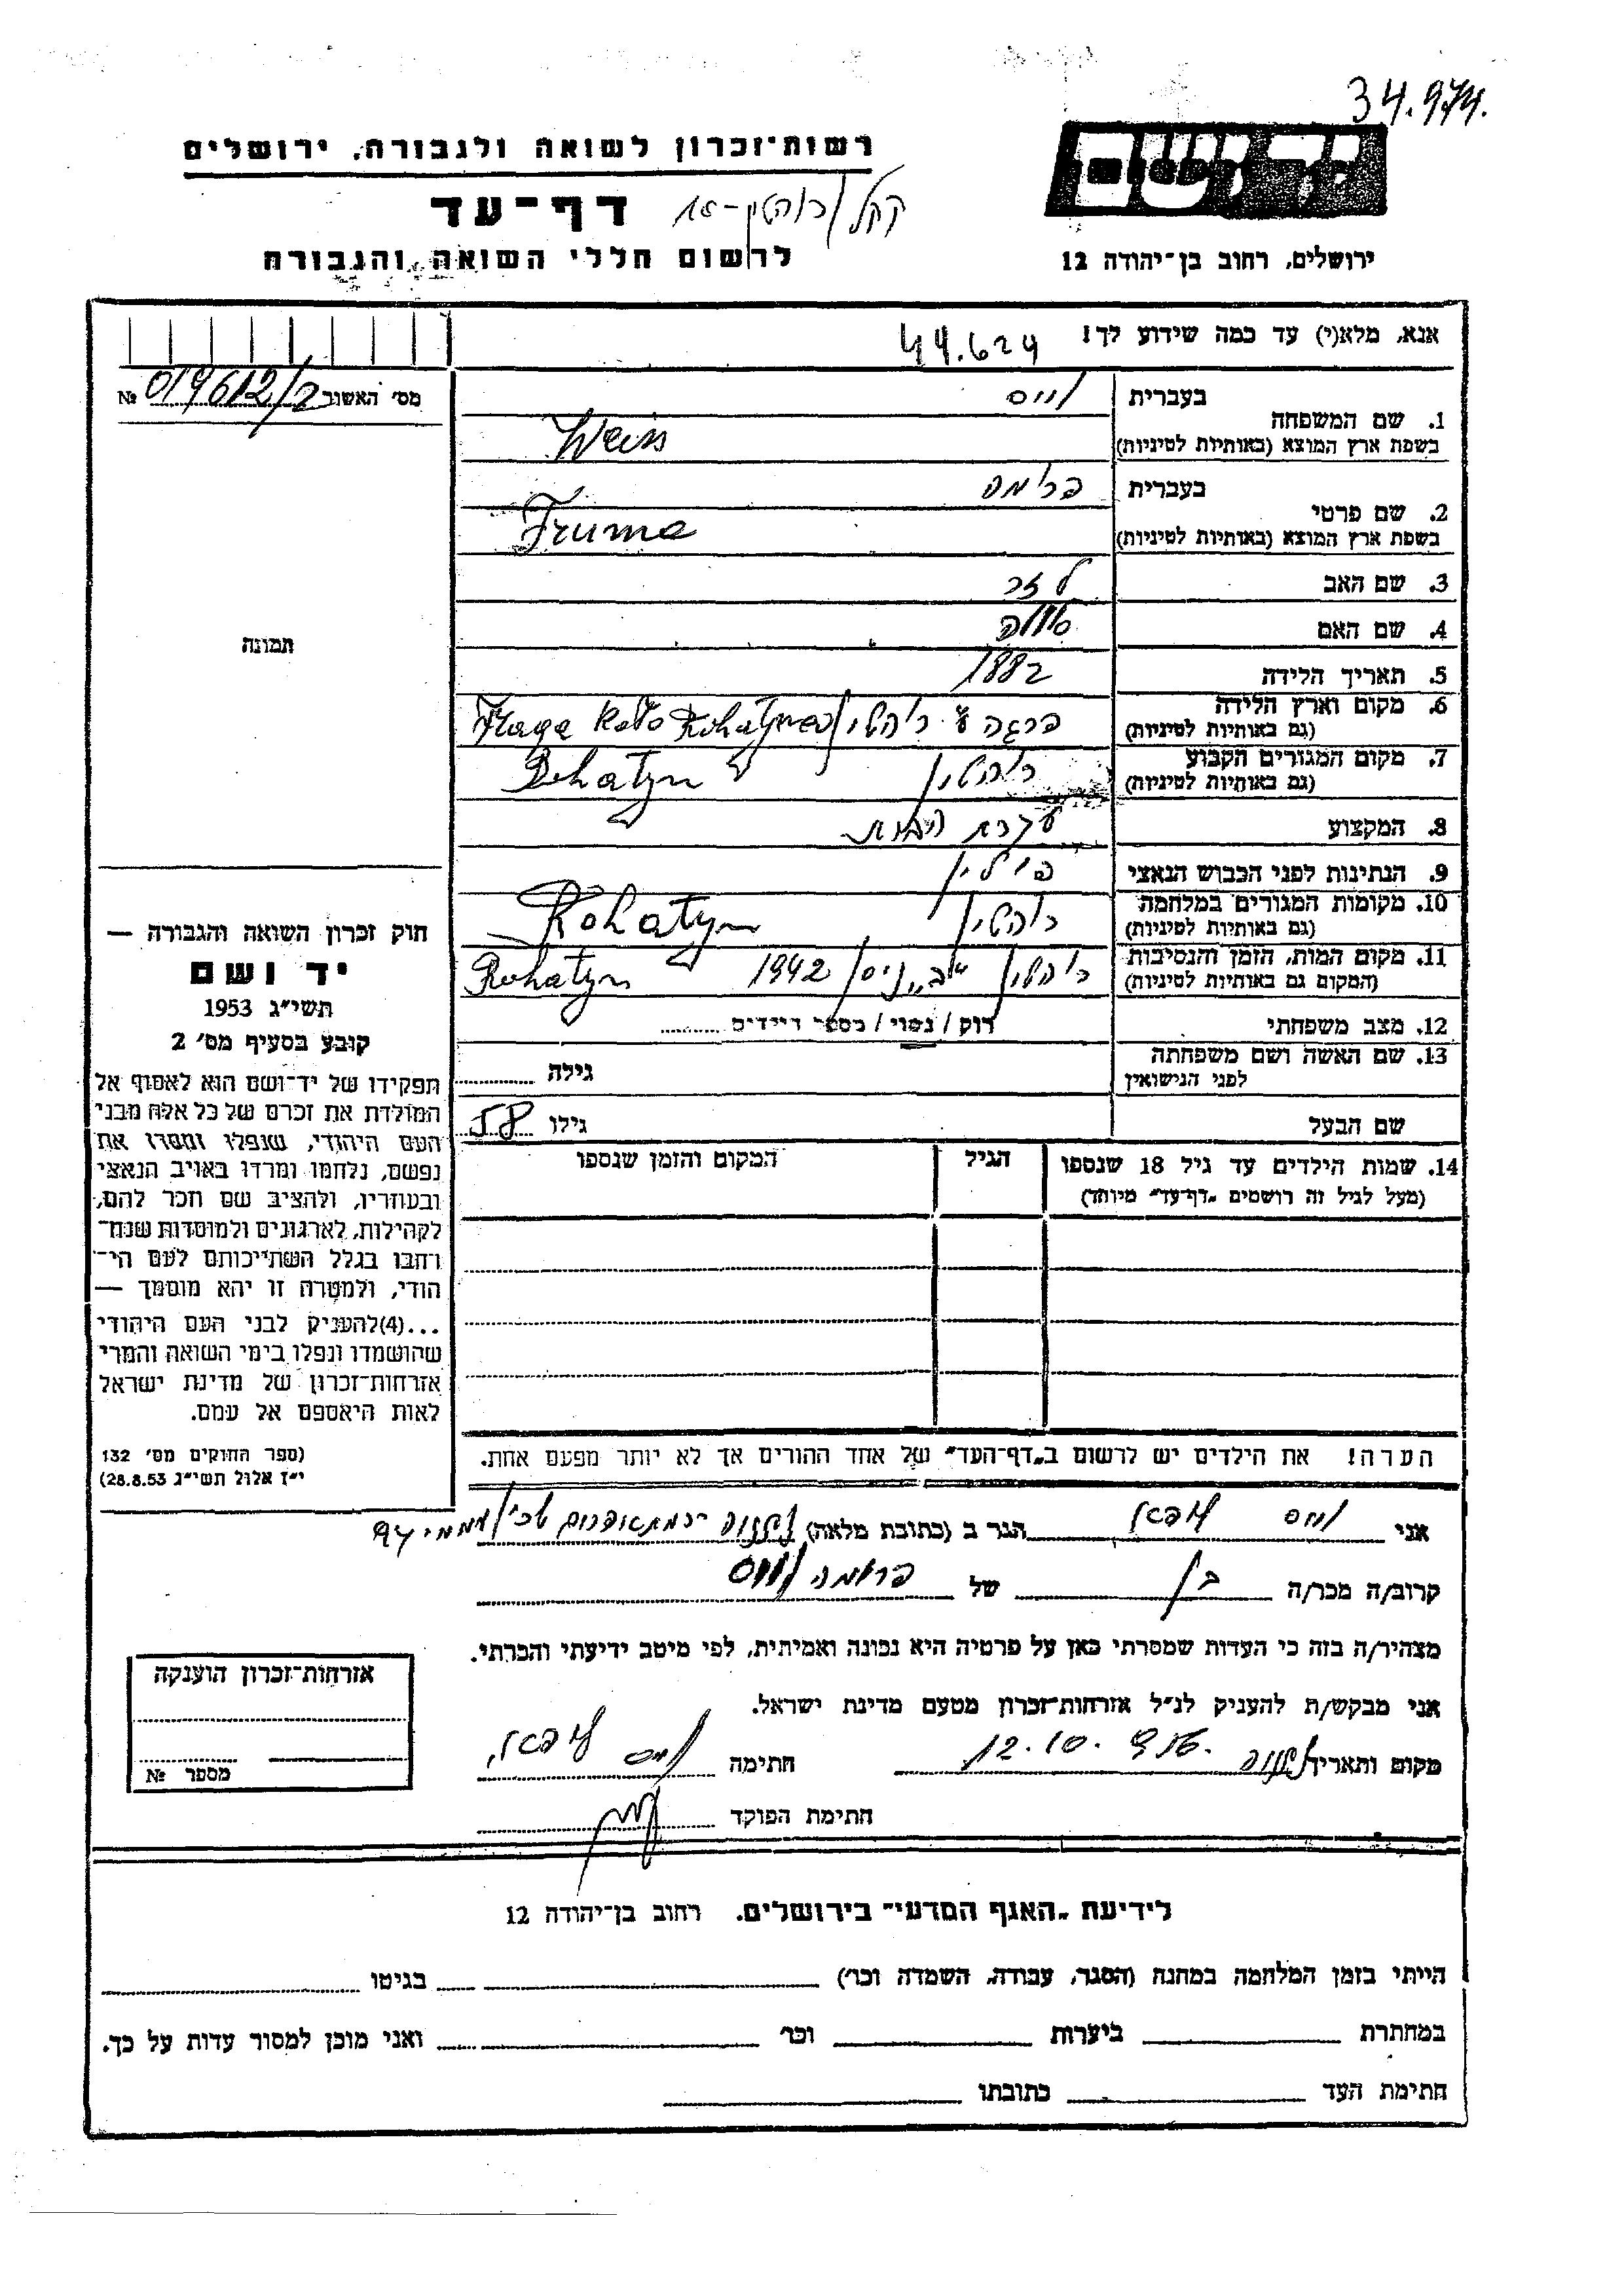 34.974.
רשות־זכרון לשואה ולגבורה. ירושלים
יד ושם
דף־עד
לרשום חללי השואה והגבורה
ירושלים, רחוב בן־יהודה 12
אנא, מלא(י) עד כמה שידוע לך! 44.624
מס׳ האשור 019612/2 №
בעברית ווייס
1. שם המשפחה
בשפת ארץ המוצא (באותיות לטיניות) Weiss
בעברית פרומה
2. שם פרטי
בשפת ארץ המוצא (באותיות לטיניות) Fruma
3. שם האב לזר
4. שם האם
5. תאריך הלידה 1882
6. מקום וארץ הלידה
(גם באותיות לטיניות) פרגה ע״י רוהטין Fraga koło Rohatyna
7. מקום המגורים הקבוע
(גם באותיות לטיניות) רוהטין Rohatyn
8. המקצוע עקרת הבית
9. הנתינות לפני הכבוש הנאצי פולין
10. מקומות המגורים במלחמה
(גם באותיות לטיניות) רוהטין Rohatyn
11. מקום המות, הזמן והנסיבות
(המקום גם באותיות לטיניות) רוהטין ניסן 1942 Rohatyn
12. מצב משפחתי רוק / נשוי / מספר היילדים
13. שם האשה ושם משפחתה
לפני הנישואין גילה
שם הבעל גילו 58
14. שמות הילדים עד גיל 18 שנספו
(מעל לגיל זה רושמים „דף־עד״ מיוחד)
הגיל
המקום והזמן שנספו
הערה! את הילדים יש לרשום ב„דף־העד״ של אחד ההורים אך לא יותר מפעם אחת.
תמונה
חוק זכרון השואה והגבורה —
יד ושם
תשי״ג 1953
קובע בסעיף מס׳ 2
תפקידו של יד־ושם הוא לאסוף אל
המולדת את זכרם של כל אלה מבני
העם היהודי, שנפלו ומסרו את
נפשם, נלחמו ומרדו באויב הנאצי
ובעוזריו, ולהציב שם וזכר להם,
לקהילות, לארגונים ולמוסדות שנח־
רבו בגלל השתייכותם לעם הי־
הודי, ולמטרה זו יהא מוסמך —
...(4)להעניק לבני העם היהודי
שהושמדו ונפלו בימי השואה והמרי
אזרחות־זכרון של מדינת ישראל
לאות היאספם אל עמם.
(ספר החוקים מס׳ 132
י״ז אלול תשי״ג 28.8.53)
אני ווייס הגר ב (כתובת מלאה)
קרוב/ה מכר/ה בן של פרומה ווייס
מצהיר/ה בזה כי העדות שמסרתי כאן על פרטיה היא נכונה ואמיתית, לפי מיטב ידיעתי והכרתי.
אני מבקש/ת להעניק לנ״ל אזרחות־זכרון מטעם מדינת ישראל.
מקום ותאריך 12.10. חתימה ווייס
חתימת הפוקד
אזרחות־זכרון הוענקה
מספר №
לידיעת „האגף המדעי״ בירושלים. רחוב בן־יהודה 12
הייתי בזמן המלחמה במחנה (הסגר, עבודה, השמדה וכו׳) בגיטו
במחתרת ביערות וכו׳ ואני מוכן למסור עדות על כך.
חתימת העד כתובתו